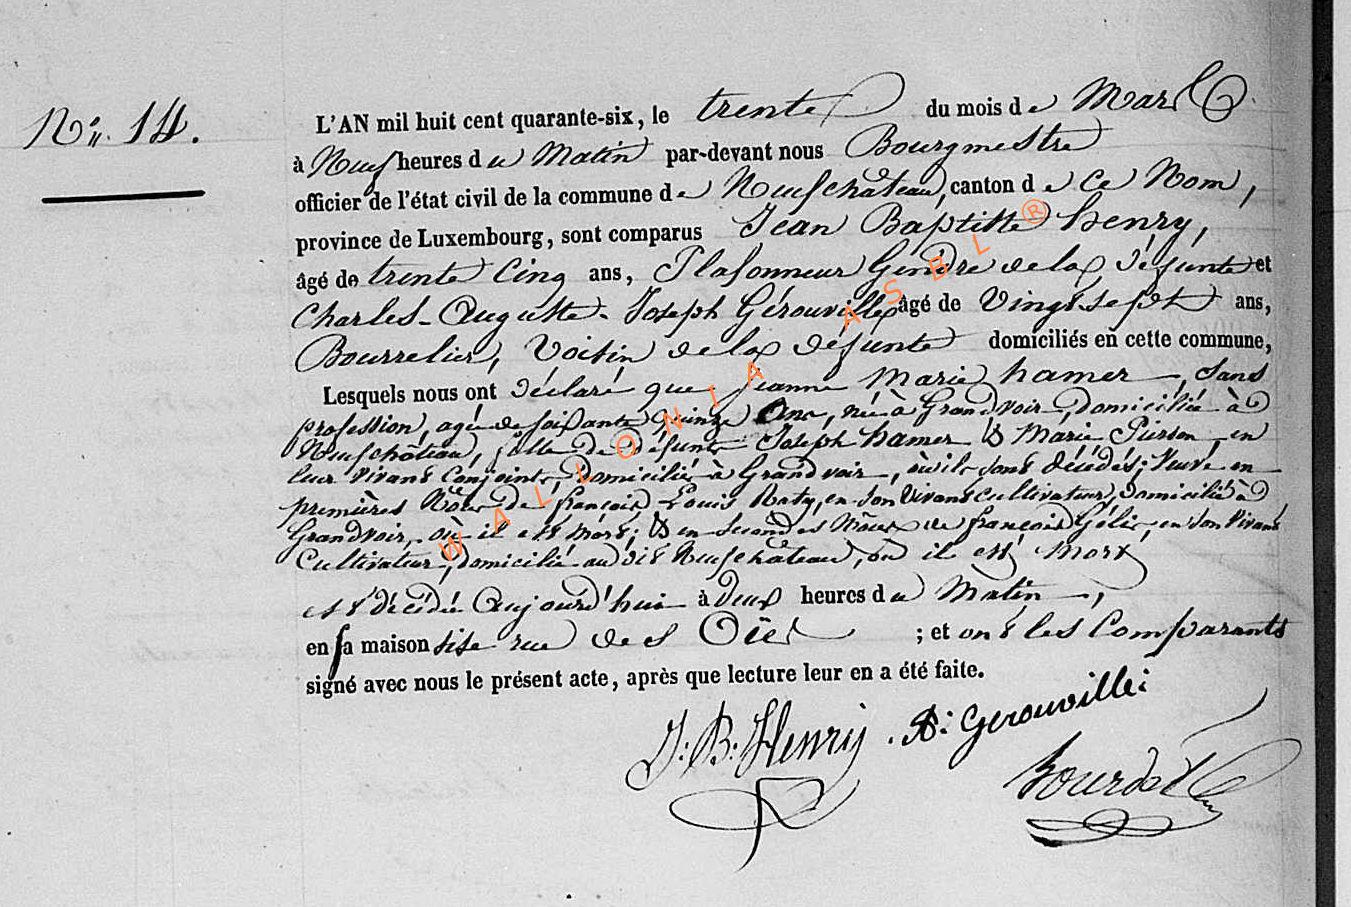 N° 14.
L'AN mil huit cent quarante-six, le trente du mois de Mars
à Neuf heures du Matin par-devant nous Bourgmestre
officier de l'état civil de la commune de Neufchâteau, canton de ce Nom,
province de Luxembourg, sont comparus Jean Baptiste henry,
âgé de trente Cinq ans, Plafonneur Gendre de la défunte et
Charles-Auguste-Joseph Gérouville âgé de Vingt sept ans,
Bourrelier, Voisin de la défunte domiciliés en cette commune,
Lesquels nous ont déclaré que Jeanne Marie hamer, Sans
profession, agée de soixante quinze Ans, née à Grandvoir, domiciliée à
Neufchâteau, fille de défunts Joseph hamer & Marie Pierson, en
leur vivant Conjoints, domiciliés à Grandvoir, où ils sont décédés; Veuve en
premières Nôces de François Louis Maty, en Son Vivant Cultivateur, domicilié à
Grandvoir, où il est mort; & en Secondes Nôces de François Gélis, en Son Vivant
Cultivateur, domicilié au dit Neufchâteau, où il est mort
est décédée Aujourd'hui à deux heures du Matin,
en sa maison sise rue des Oies ; et ont les Comparants
signé avec nous le présent acte, après que lecture leur en a été faite.
J. B. Henry . A: Gerouville:
Bourdet
WALLONIA ASBL ®